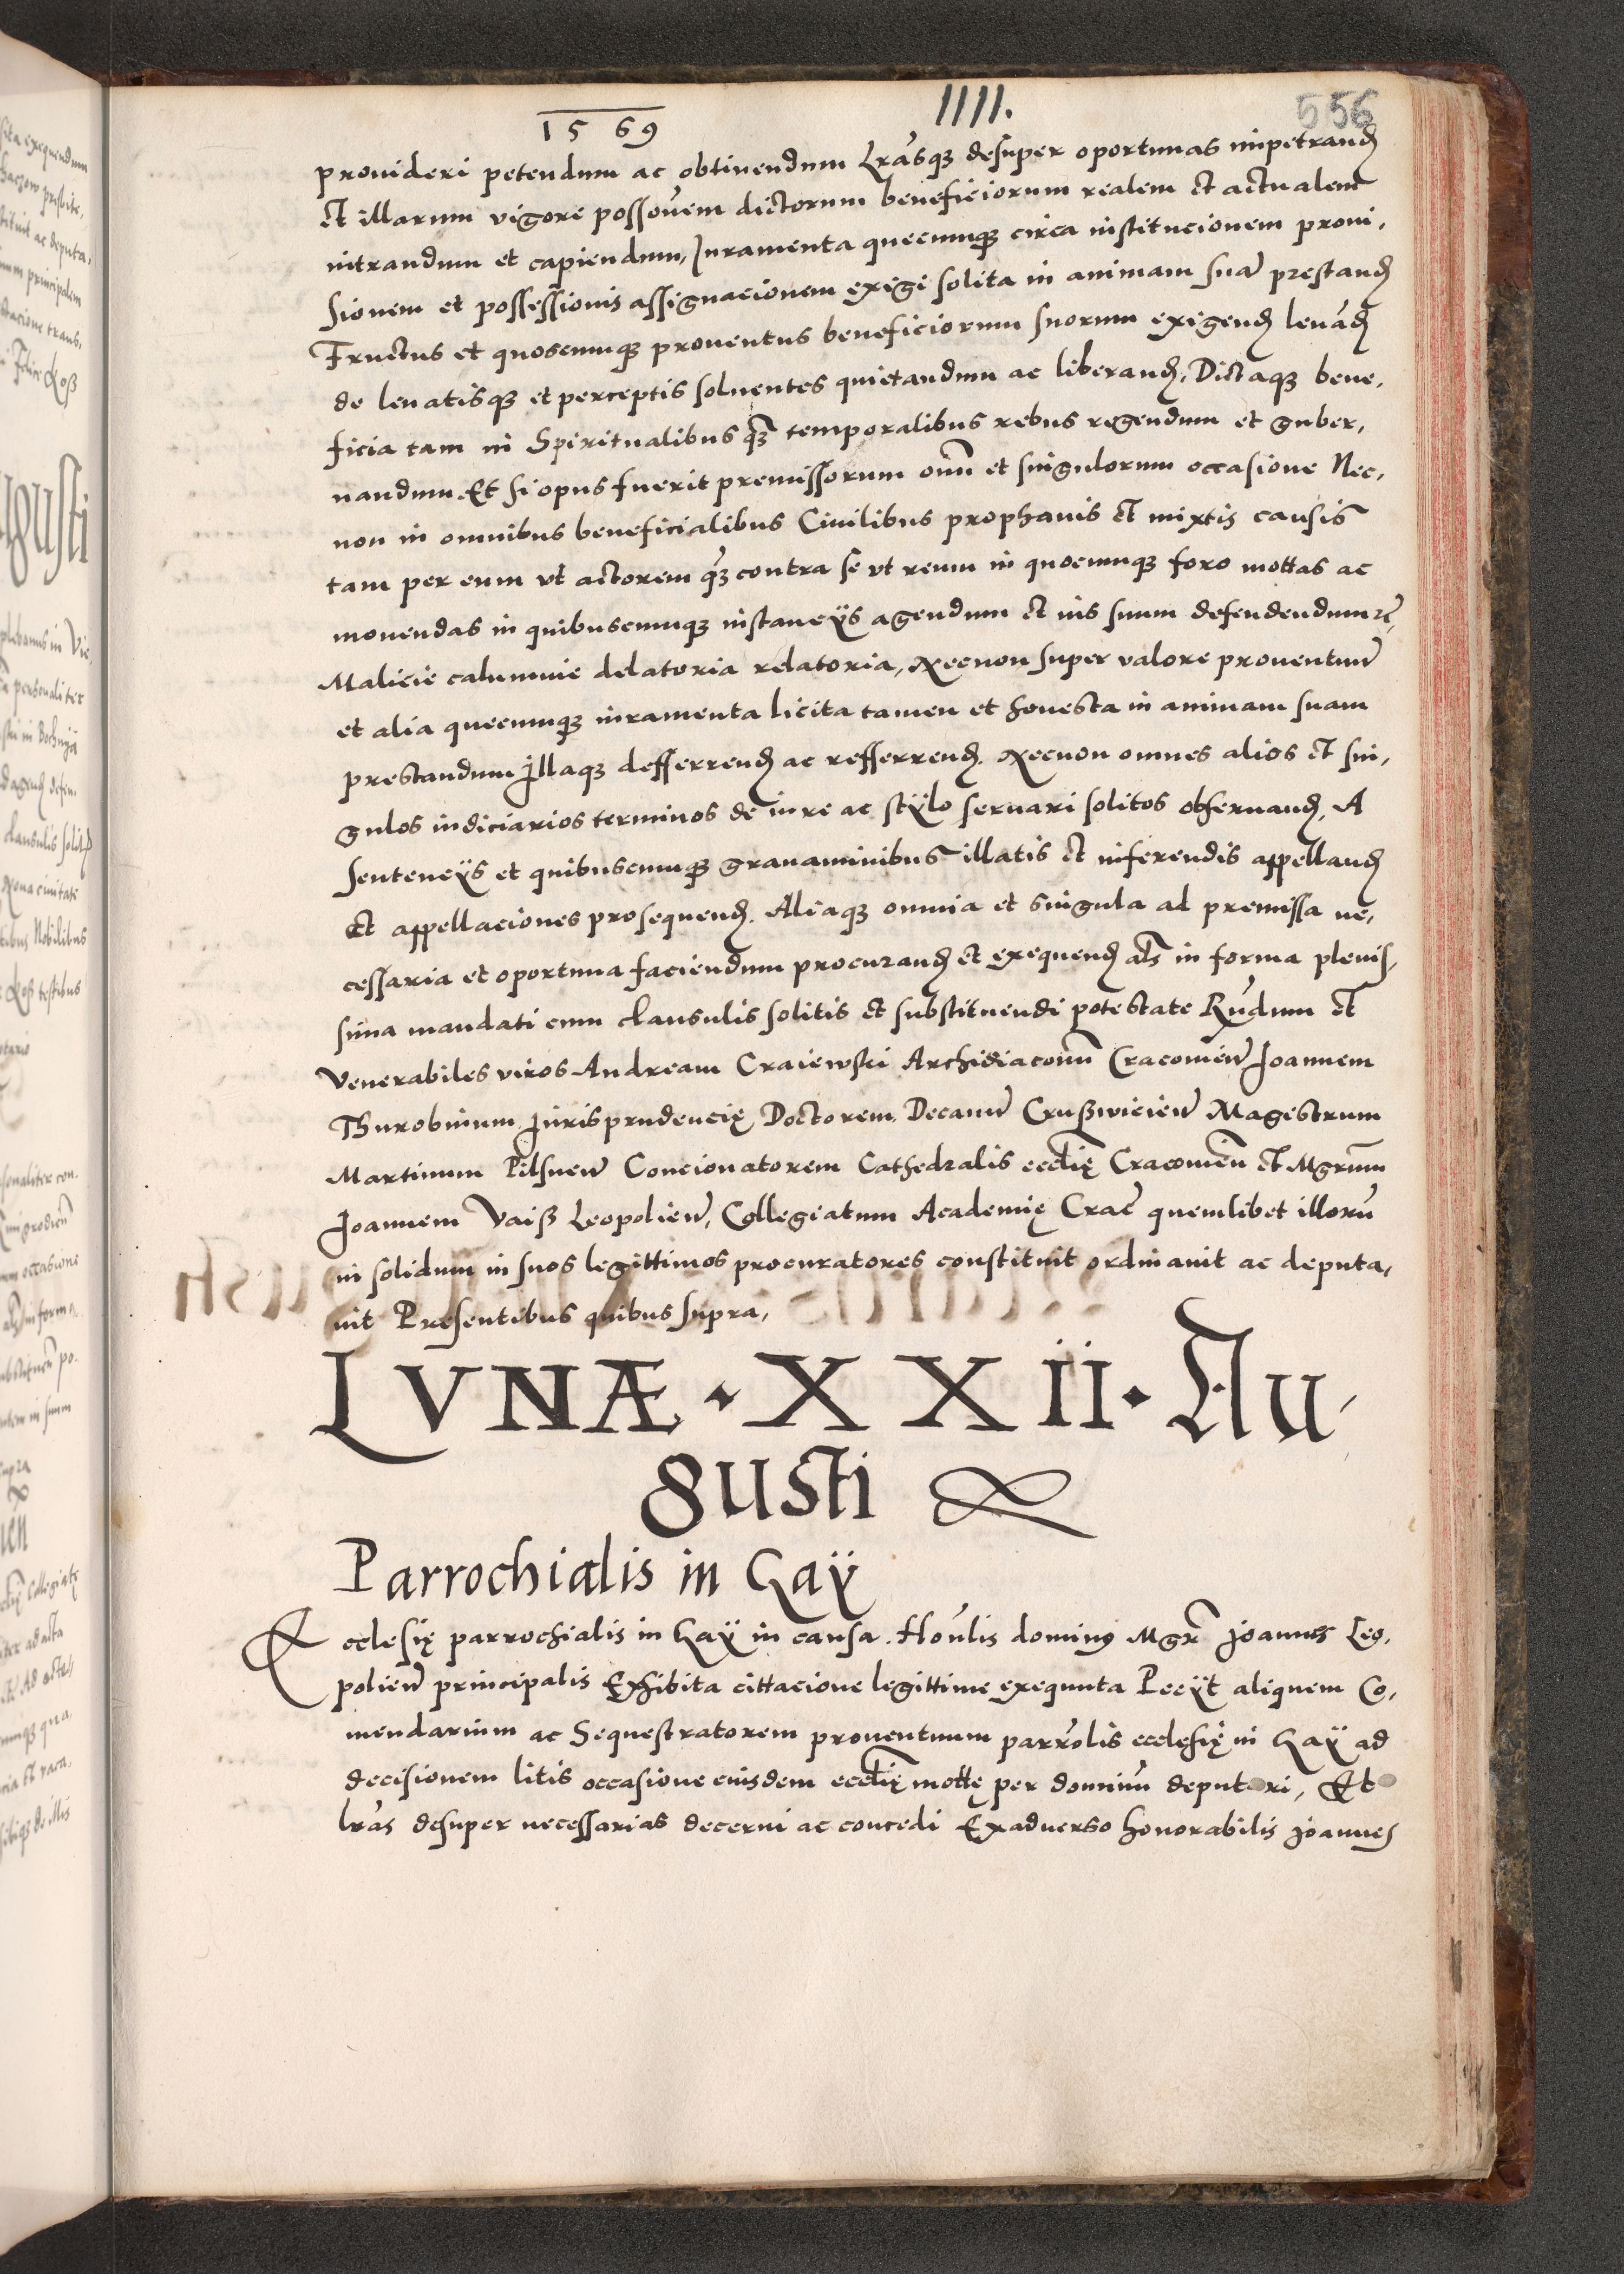 1569
IIII.
556
prouideri petendum ac obtinendum Lrãsq; desuper oportunas impetrand
et illarum vigore possõnem dictorum beneficiorum realem et actualem
intrandum et capiendum, Juramenta quecumq; circa institucionem proui,
sionem et possessionis assignacionem exigi solita in animam suã prestand
Fructus et quoscumq; prouentus beneficiorum suorum exigend leuãd
de leuatisq; et perceptis soluentes quietandum ac liberand, Dictaq; bene,
ficia tam in Spiritualibus q̃ temporalibus rebus regendum et guber,
nandum Et si opus fuerit premissorum oñu et singulorum occasione Nec,
non in omnibus beneficialibus Ciuilibus prophanis et mixtis causis
tam per eum vt actorem q̃ contra se vt reum in quocumq; foro mottas ac
mouendas in quibuscumq; instancÿs agendum et ius suum defendendum rc̃
Malicie calumnie delatoria relatoria, Necnon super valore prouentuũ
et alia quecumq; iuramenta licita tamen et honesta in animam suam
prestandum Jllaq; defferrend ac refferrend. Necnon omnes alios et sin,
gulos iudiciarios terminos de iure ac stÿlo seruari solitos obseruand, A
sentencÿs et quibuscumq; grauaminibus illatis et inferendis appelland
Et appellaciones prosequend. Aliaq; omnia et singula ad premissa ne,
cessaria et oportuna faciendum procurand et exequend als in forma plenis,
sima mandati cum clausulis solitis et substituendi potestate Rũdum et
Venerabiles viros Andream Craiewski Archidiaconũ Cracouieñ Joannem
Thurobinum Jurisprudencię Doctorem Decanũ Crußwicieñ Magistrum
Martinum Pilsneñ Concionatorem Cathedralis ecclię Cracouieñ et Mgrum
Joannem Vaiß Leopolieñ, Collegiatum Academię Crac̃ quemlibet illorũ
in solidum in suos legittimos procuratores constituit ordinauit ac deputa,
uit Presentibus quibus supra,
LVNÆ · XXII · Au,
gusti
Parrochialis in Gaÿ
Ecclesię parrochialis in Gaÿ in causa. Hoñlis dominus Mgr̃ Joannes Leo,
polieñ principalis Exhibita cittacione legittime exequuta Pecÿt aliquem Co,
mendarium ac Sequestratorem prouentuum parrolis ecclesię in Gaÿ ad
decisionem litis occasione eiusdem ecclię motte per dominũ deputari, Et
lrãs desuper necessarias decerni ac concedi Exaduerso honorabilis Joannes